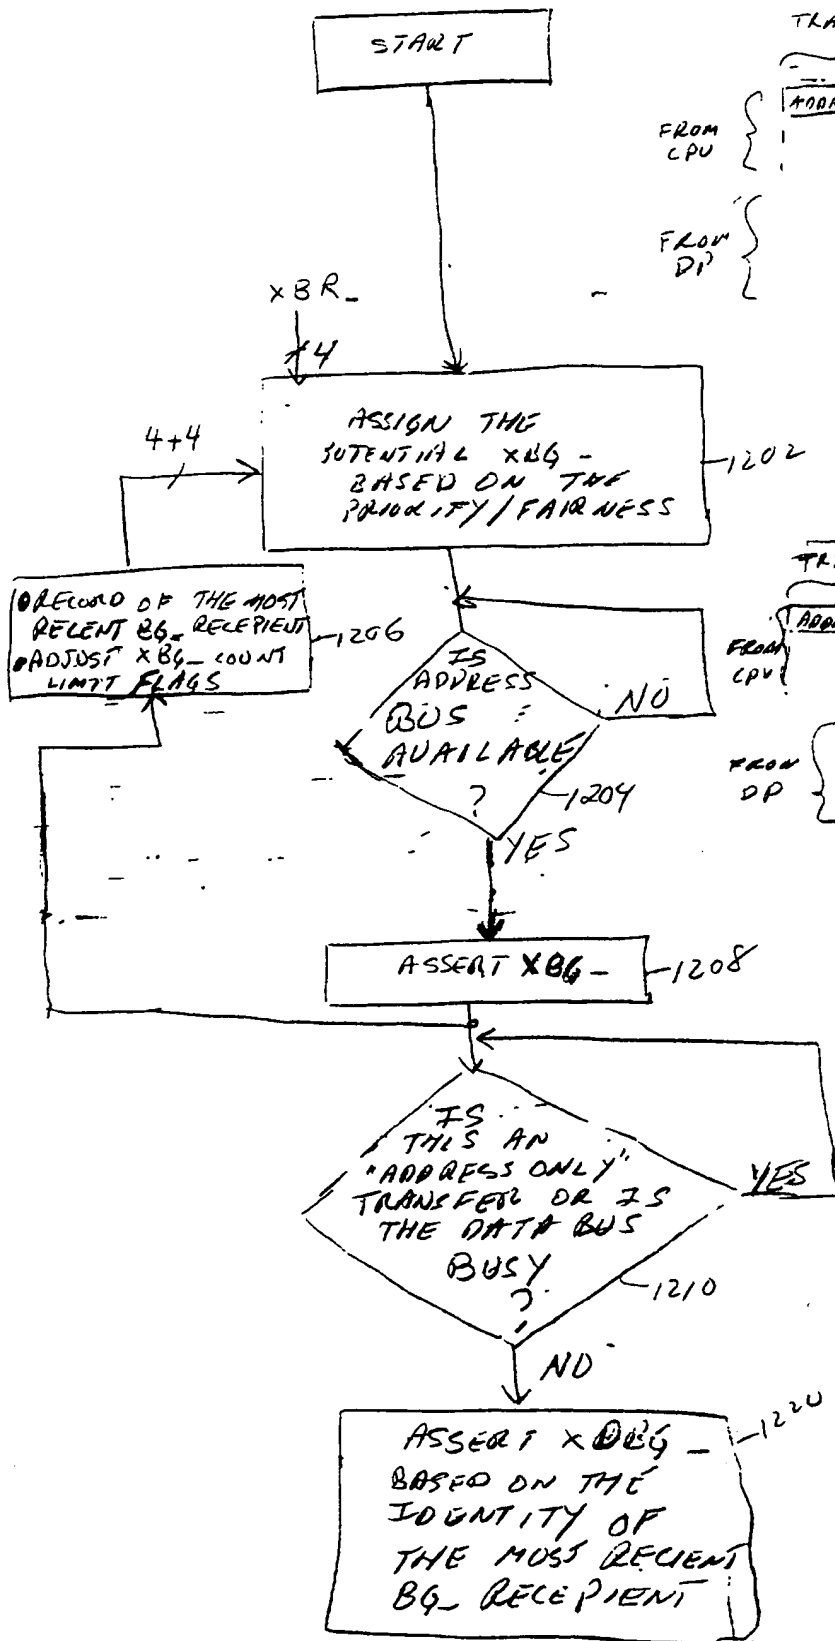 START
TRA
ADDR
FROM
CPU
FROM
DP
XBR_
4
4+4
ASSIGN THE
POTENTIAL XBG_
BASED ON THE
PRIORITY/FAIRNESS
1202
RECORD OF THE MOST
RECENT BG_ RECEPIENT
ADJUST XBG_ COUNT
LIMIT FLAGS
1206
TR
ADDR
FROM
CPU
FROM
DP
IS
ADDRESS
BUS
AVAILABLE
?
NO
1204
YES
ASSERT XBG_
1208
IS
THIS AN
"ADDRESS ONLY"
TRANSFER OR IS
THE DATA BUS
BUSY
?
YES
1210
NO
ASSERT XDBG_
BASED ON THE
IDENTITY OF
THE MOSS RECIENT
BG_ RECEPIENT
1220